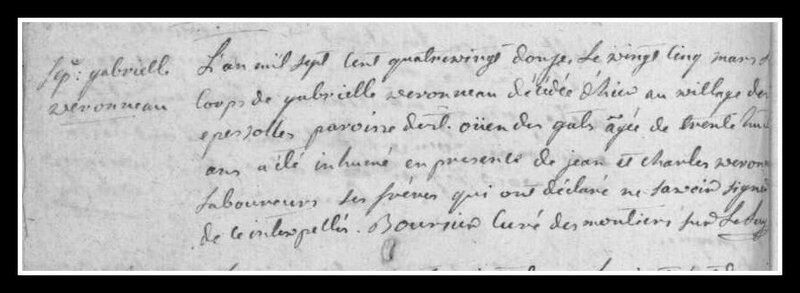 sep: gabrielle
veronneau
L'an mil sept cent quatrevingt douze, le vingt cinq mars
corps de gabrielle veronneau décédée d'hier au village des
epessottes paroisse de st. oüen des gats agée de trente huit
ans a été inhumé en presence de jean et charles veron
laboureurs ses frères qui ont déclaré ne savoir signer
de ce interpellés. Boursier curé des moutiers sur le lay